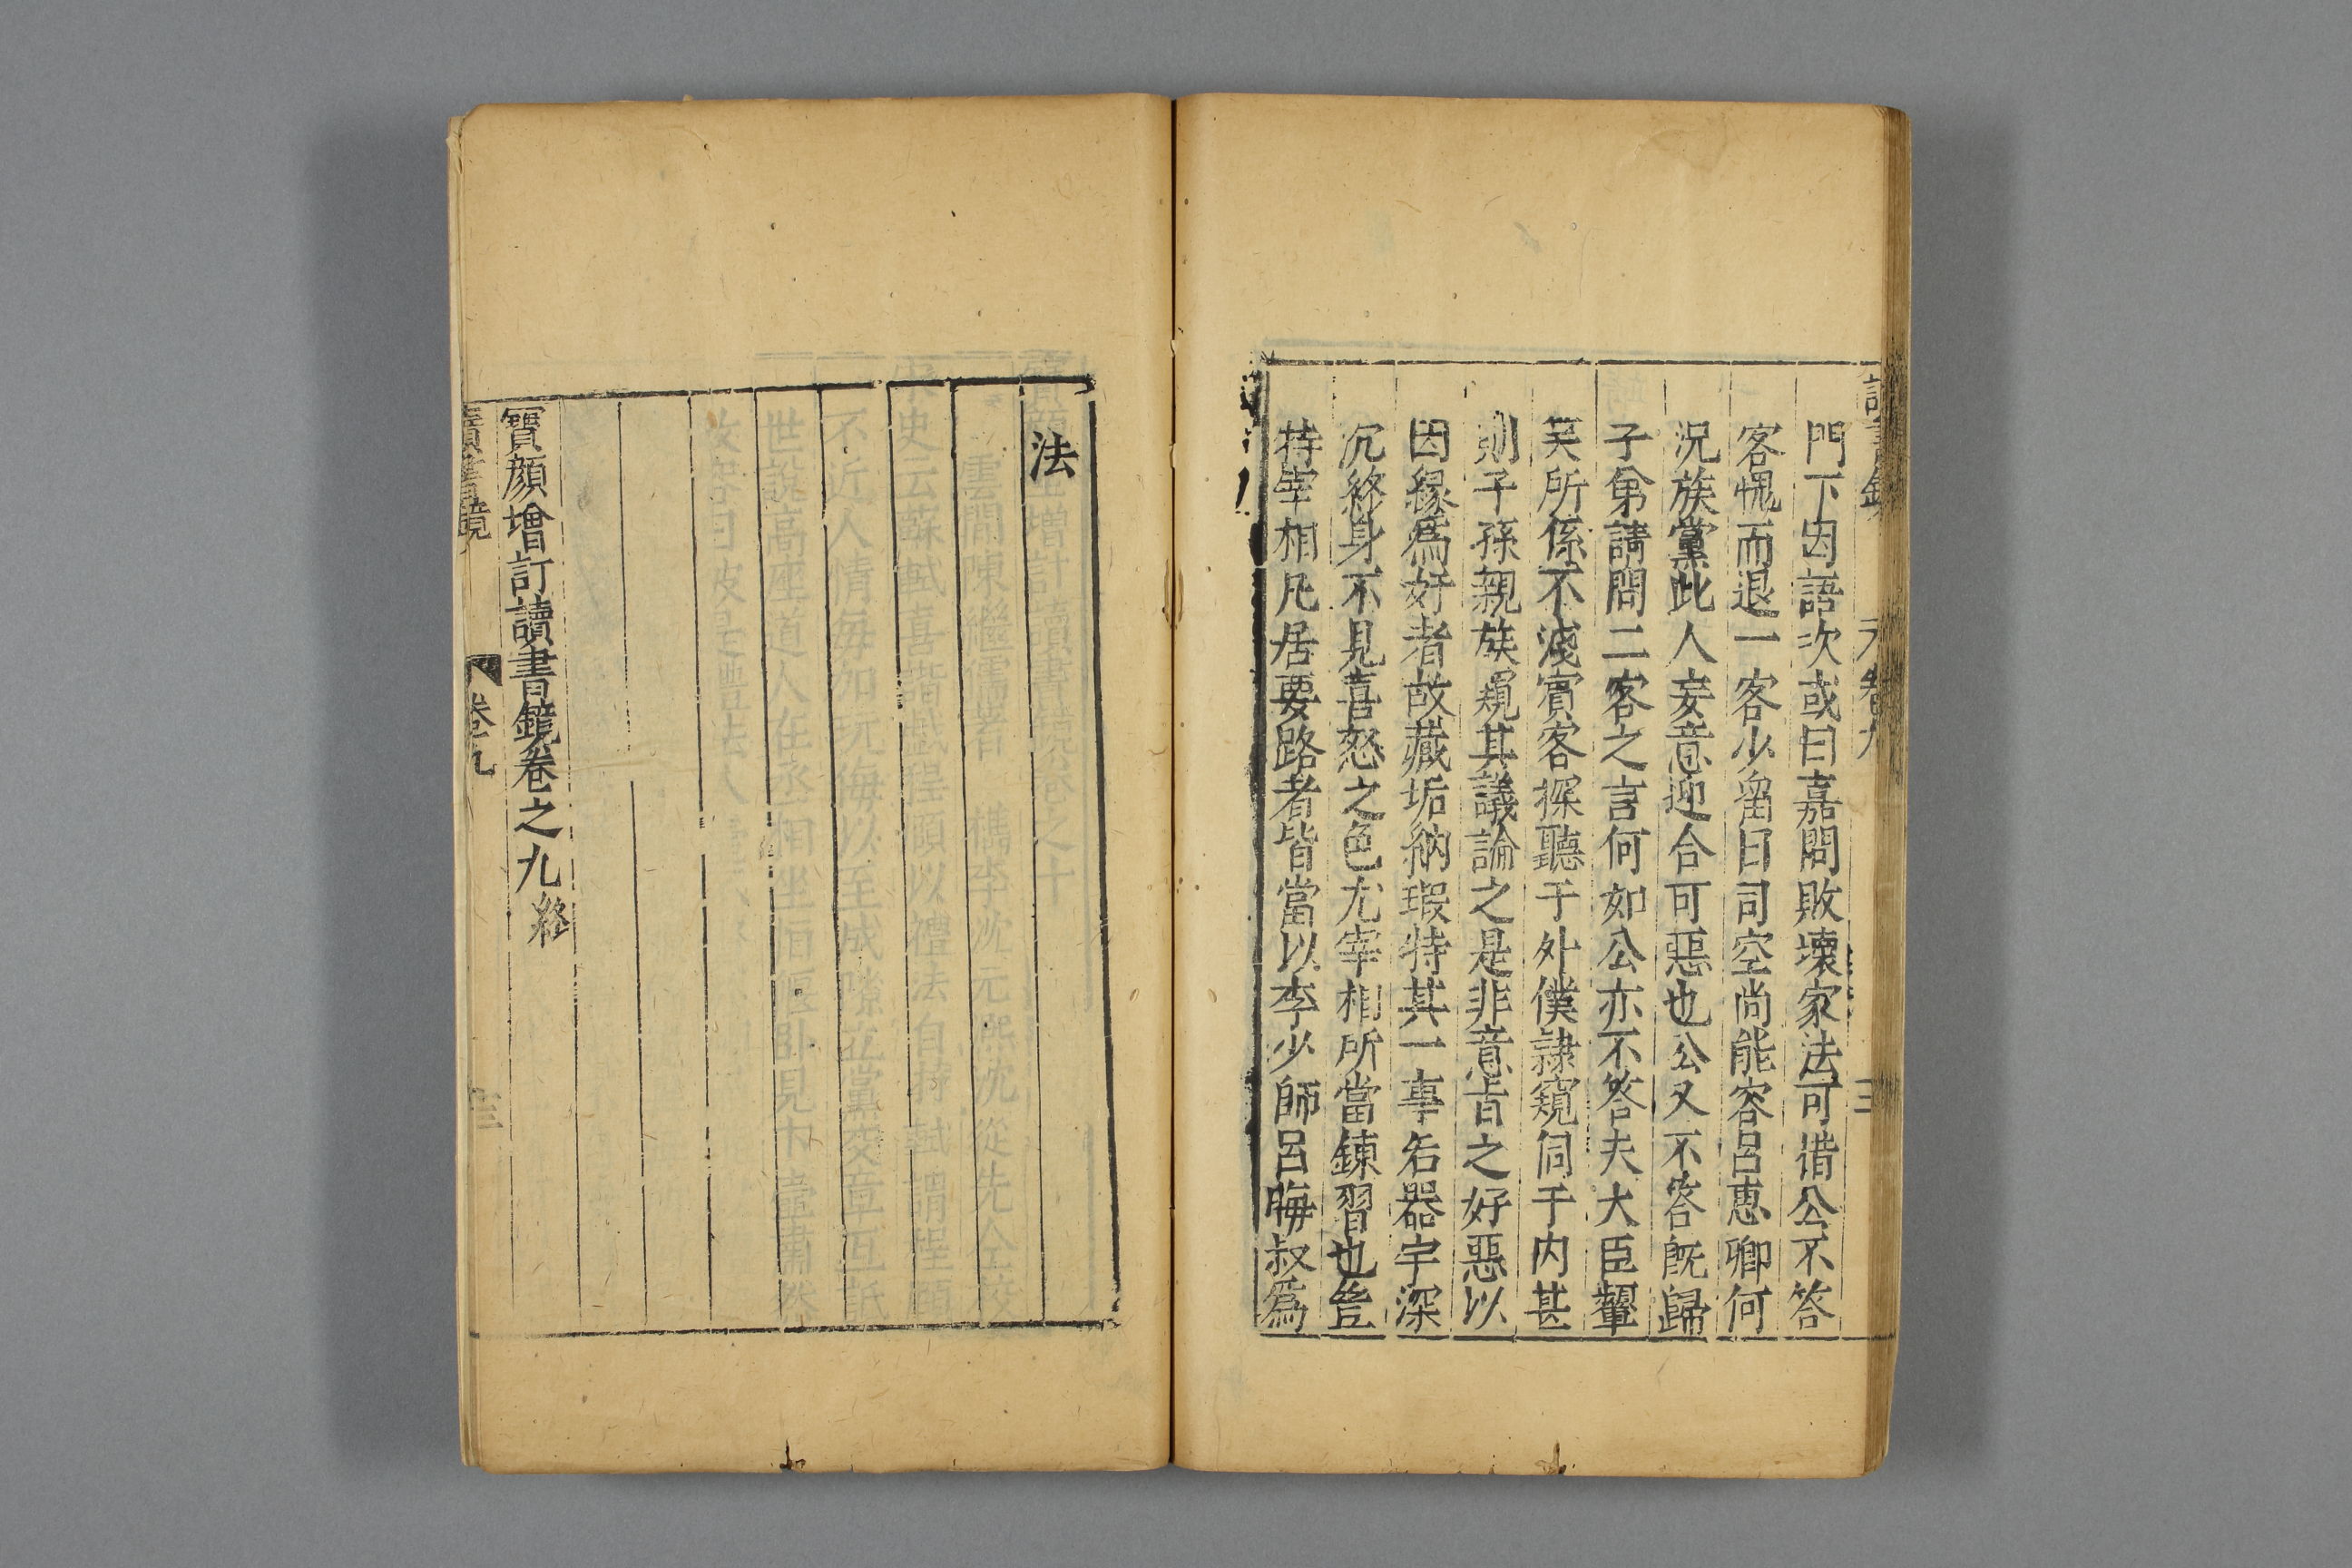 門下因語次或曰嘉問敗壞家法可惜公不答
客愧而退一客少留曰司空尚能容呂惠卿何
況族黨此人妄意迎合可惡也公又不答既歸
子弟請問二客之言何如公亦不答夫大臣顰
笑所係不淺賓客探聽于外僕隷窺伺于内甚
則子孫親族窺其議論之是非意旨之好惡以
因緣爲奸者故藏垢納瑕特其一事若器宇深
沉終身不見喜怒之色尤宰相所當鍊習也豈
特宰相凡居要路者皆當以李少師呂晦叔爲
法
寶顔增訂讀書鏡卷之九終
讀書鏡
卷九